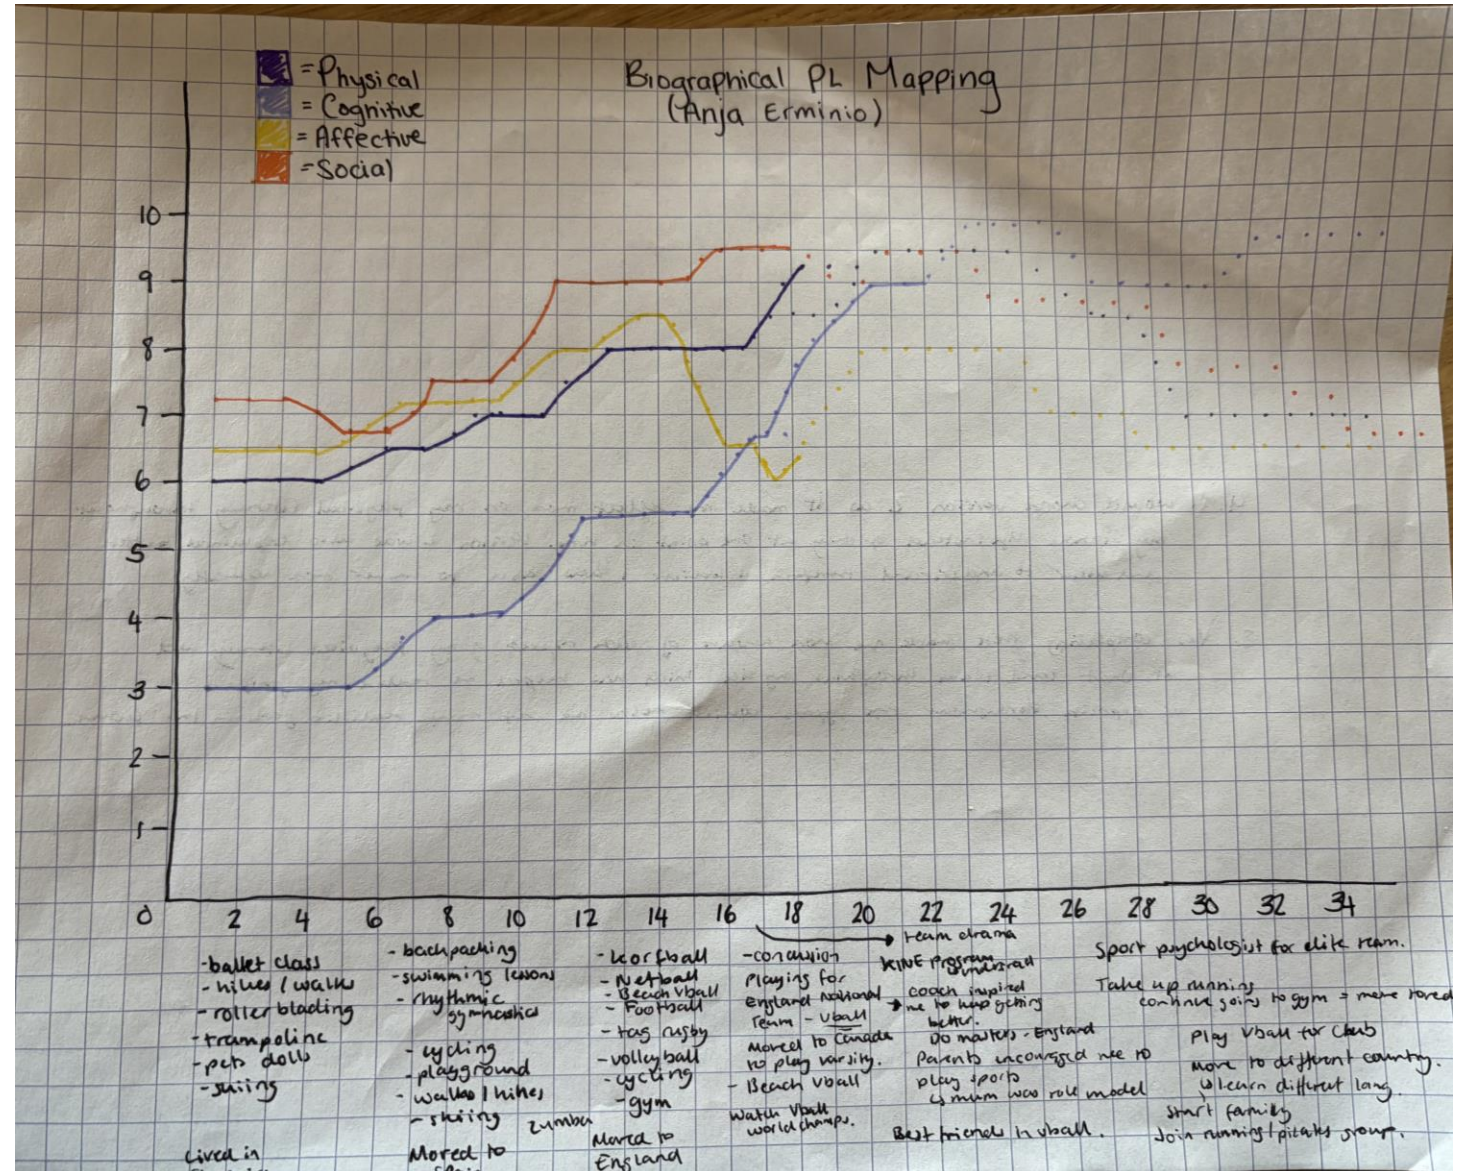 = Physical
= Cognitive
= Affective
= Social
Biographical PL Mapping
(Anja Erminio)
10
9
8
7
6
5
4
3
2
1
0 2 4 6 8 10 12 14 16 18 20 22 24 26 28 30 32 34
- ballet class
- hikes / walks
- roller blading
- trampoline
- pets dolls
- skiing
Lived in
- backpacking
- swimming lessons
- rhythmic
gymnastics
- cycling
- playground
- walks / hikes
- skiing zumba
Moved to
- korfball
- Netball
- Beach vball
- Football
- tag rugby
- volleyball
- cycling
- gym
Moved to
England
- concussion
Playing for
England National
Team - Vball
Moved to Canada
to play varsity.
- Beach vball
Watch Vball
world champs.
team drama
KINE program
undergrad
coach inspired
me to keep getting
better.
Do masters - England
Parents encouraged me to
play sports
mum was role model
Best friends in vball.
Sport psychologist for elite team.
Take up running
continue going to gym = more toned
Play vball for club
Move to different country.
learn different lang.
start family
Join running / pilates group.